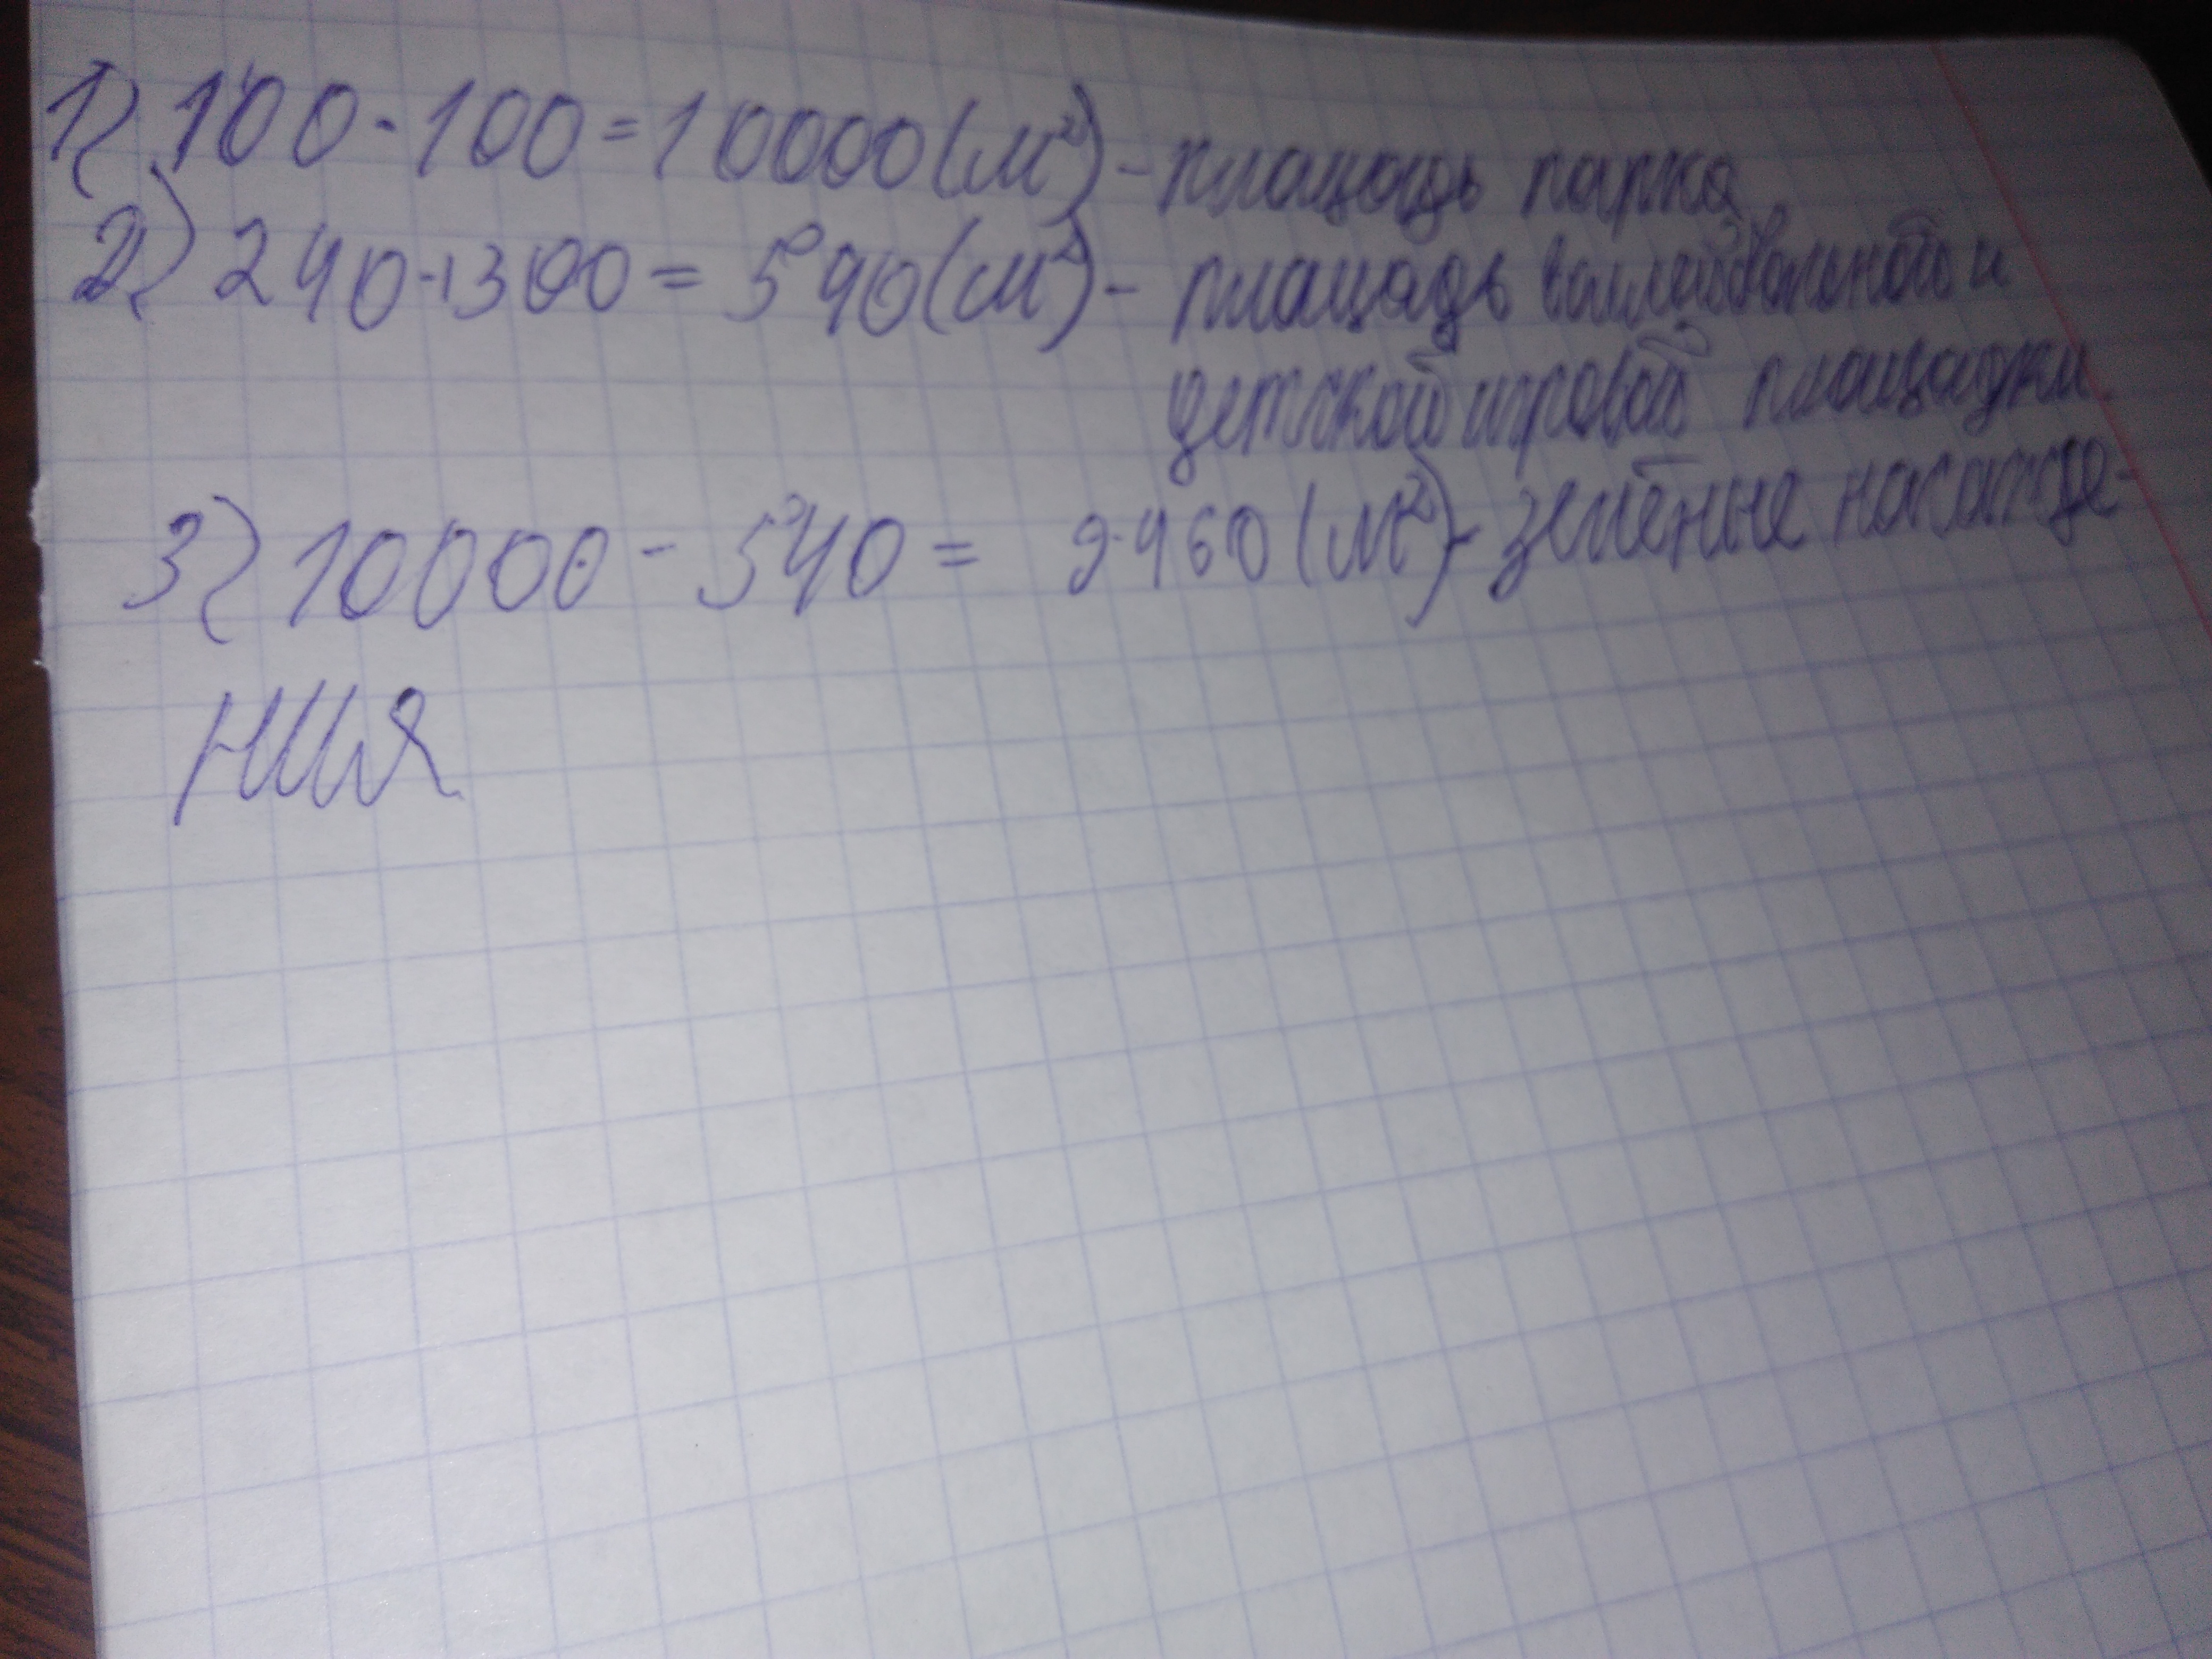 1) 100·100=10000(м²)-площадь парка
2) 240+300=540(м²)- площадь валлейбольной и
детской игровой площадки.
3) 10000-540= 9460(м²)-зелёные насажде-
ния